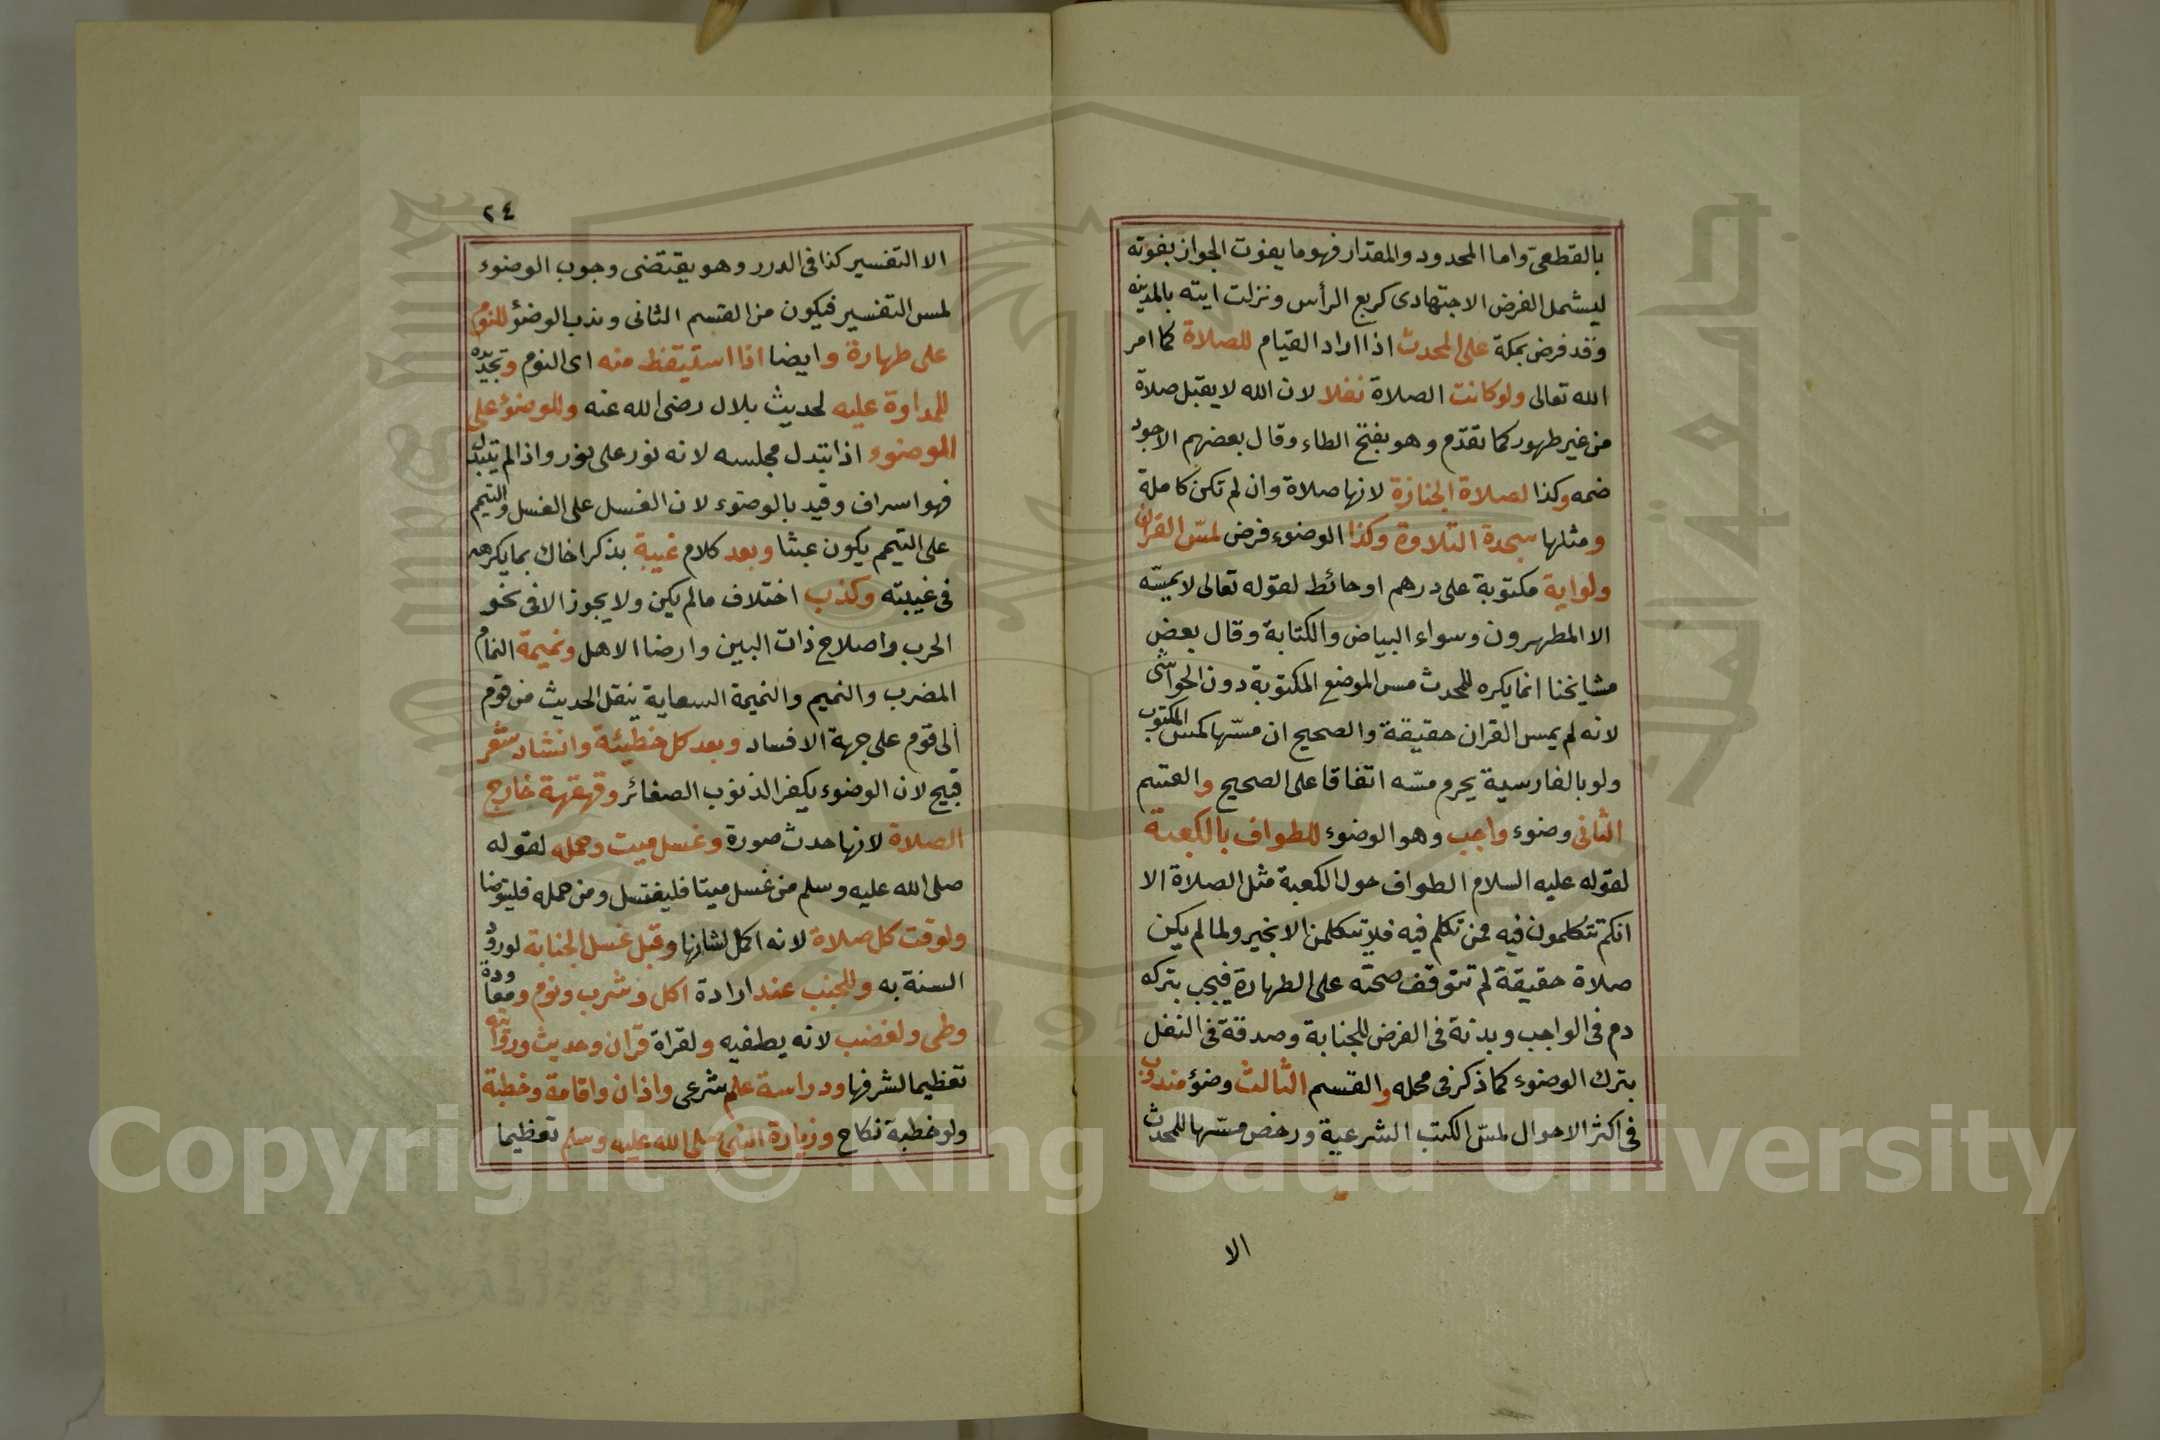 بالقطعىّ واما المحدود والمقدار فهو ما يفوت الجواز بفوته
ليشمل الفرض الاجتهادى كربع الرأس ونزلت ايته بالمدينه
وقد فرض بمكة على المحدث اذا اراد القيام للصلاة كما امر
الله تعالى ولو كانت الصلاة نفلا لان الله لا يقبل صلاة
من غير طهور كما تقدّم وهو بفتح الطاء وقال بعضهم الاجود
ضمه وكذا لصلاة الجنازة لانها صلاة وان لم تكن كاملة
ومثلها سجدة التلاوة وكذا الوضوء فرض لمسّ القران
ولواية مكتوبة على درهم او حائط لقوله تعالى لا يمسّه
الا المطهرون وسواء البياض والكتابة وقال بعض
مشايخنا انما يكره للمحدث مس الموضع المكتوبة دون الحواشى
لانه لم يمس القران حقيقة والصحيح ان مسّها كمس المكتوب
ولو بالفارسية يحرم مسّه اتفاقا على الصحيح والقسم
الثانى وضوء واجب وهو الوضوء للطواف بالكعبة
لقوله عليه السلام الطواف حول الكعبة مثل الصلاة الا
انكم تتكلمون فيه فمن تكلم فيه فلا يتكلمن الا بخير ولما لم يكن
صلاة حقيقة لم تتوقف صحته على الطهارة فيجب بتركه
دم فى الواجب وبدنة فى الفرض للجنابة وصدقة فى النفل
بترك الوضوء كما ذكر فى محله والقسم الثالث وضؤ مندوب
فى اكثر الاحوال لمسّ الكتب الشرعية ورخص مسّها للمحدث
الا
٢٤
الا التفسير كذا فى الدرر وهو يقتضى وجوب الوضوء
لمس التفسير فيكون من القسم الثانى وندب الوضؤ للنوم
على طهارة وايضا اذا استيقظ منه اى النوم وتجديده
للمداوة عليه لحديث بلال رضى الله عنه وللوضوء على
الوضوء اذا تبدل مجلسه لانه نور على نور واذا لم يتبدل
فهو اسراف وقيد بالوضوء لان الغسل على الغسل والتيمم
على التيمم يكون عبثا وبعد كلام غيبة بذكر اخاك بما يكره
فى غيبته وكذب اختلاف ما لم يكن ولا يجوز الا فى نحو
الحرب واصلاح ذات البين وارضا الاهل ونميمة النمام
المضرب والنميم والنميمة السعاية بنقل الحديث من قوم
الى قوم على جهة الافساد وبعد كل خطيئة وانشاد شعر
قبيح لان الوضوء يكفر الذنوب الصغائر وقهقهة خارج
الصلاة لانها حدث صورة وغسل ميت وحمله لقوله
صلى الله عليه وسلم من غسل ميتا فليغتسل ومن حمله فليتوضا
ولوقت كل صلاة لانه اكمل لشانها وقبل غسل الجنابة لورود
السنة به وللجنب عند ارادة اكل وشرب ونوم ومعاودة
وطى ولغضب لانه يطفيه ولقراة قران وحديث وروايته
تعظيما لشرفها ودراسة علم شرعى واذان واقامة وخطبة
ولو خطبة نكاح وزيارة النبى صلى الله عليه وسلم تعظيما
Copyright © King Saud University
1957